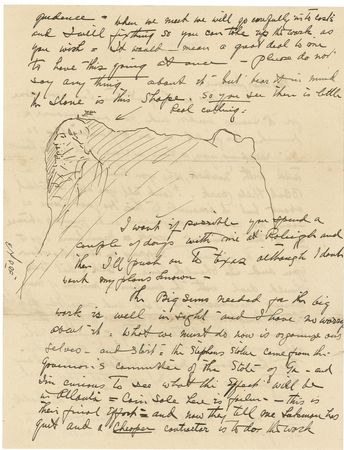 guidance - when we meet we will go carefully into costs
and I will fix things so you can take up the work as
you wish - It would mean a great deal to me
to have this going at once - please do not
say any thing about it - but bear it in mind
The stone is this shape. So you see there is little
Real cutting.
I want if possible you spend a
couple of days with me at Raleigh and
then I'll push on to Texas although I don't
want my plans known -
The Big Sums needed for the big
work is well in sight and I have no worry
about it. What we must do now is organize our
selves - and start - the Stephens statue came from the
Governor's committee of the State of Ga - and
I'm curious to see what the effect will be
in Atlanta - Coin Sale here is failure - this is
their final effort - and now they tell me Lukeman has
quit and a Cheaper contractor is to do the work